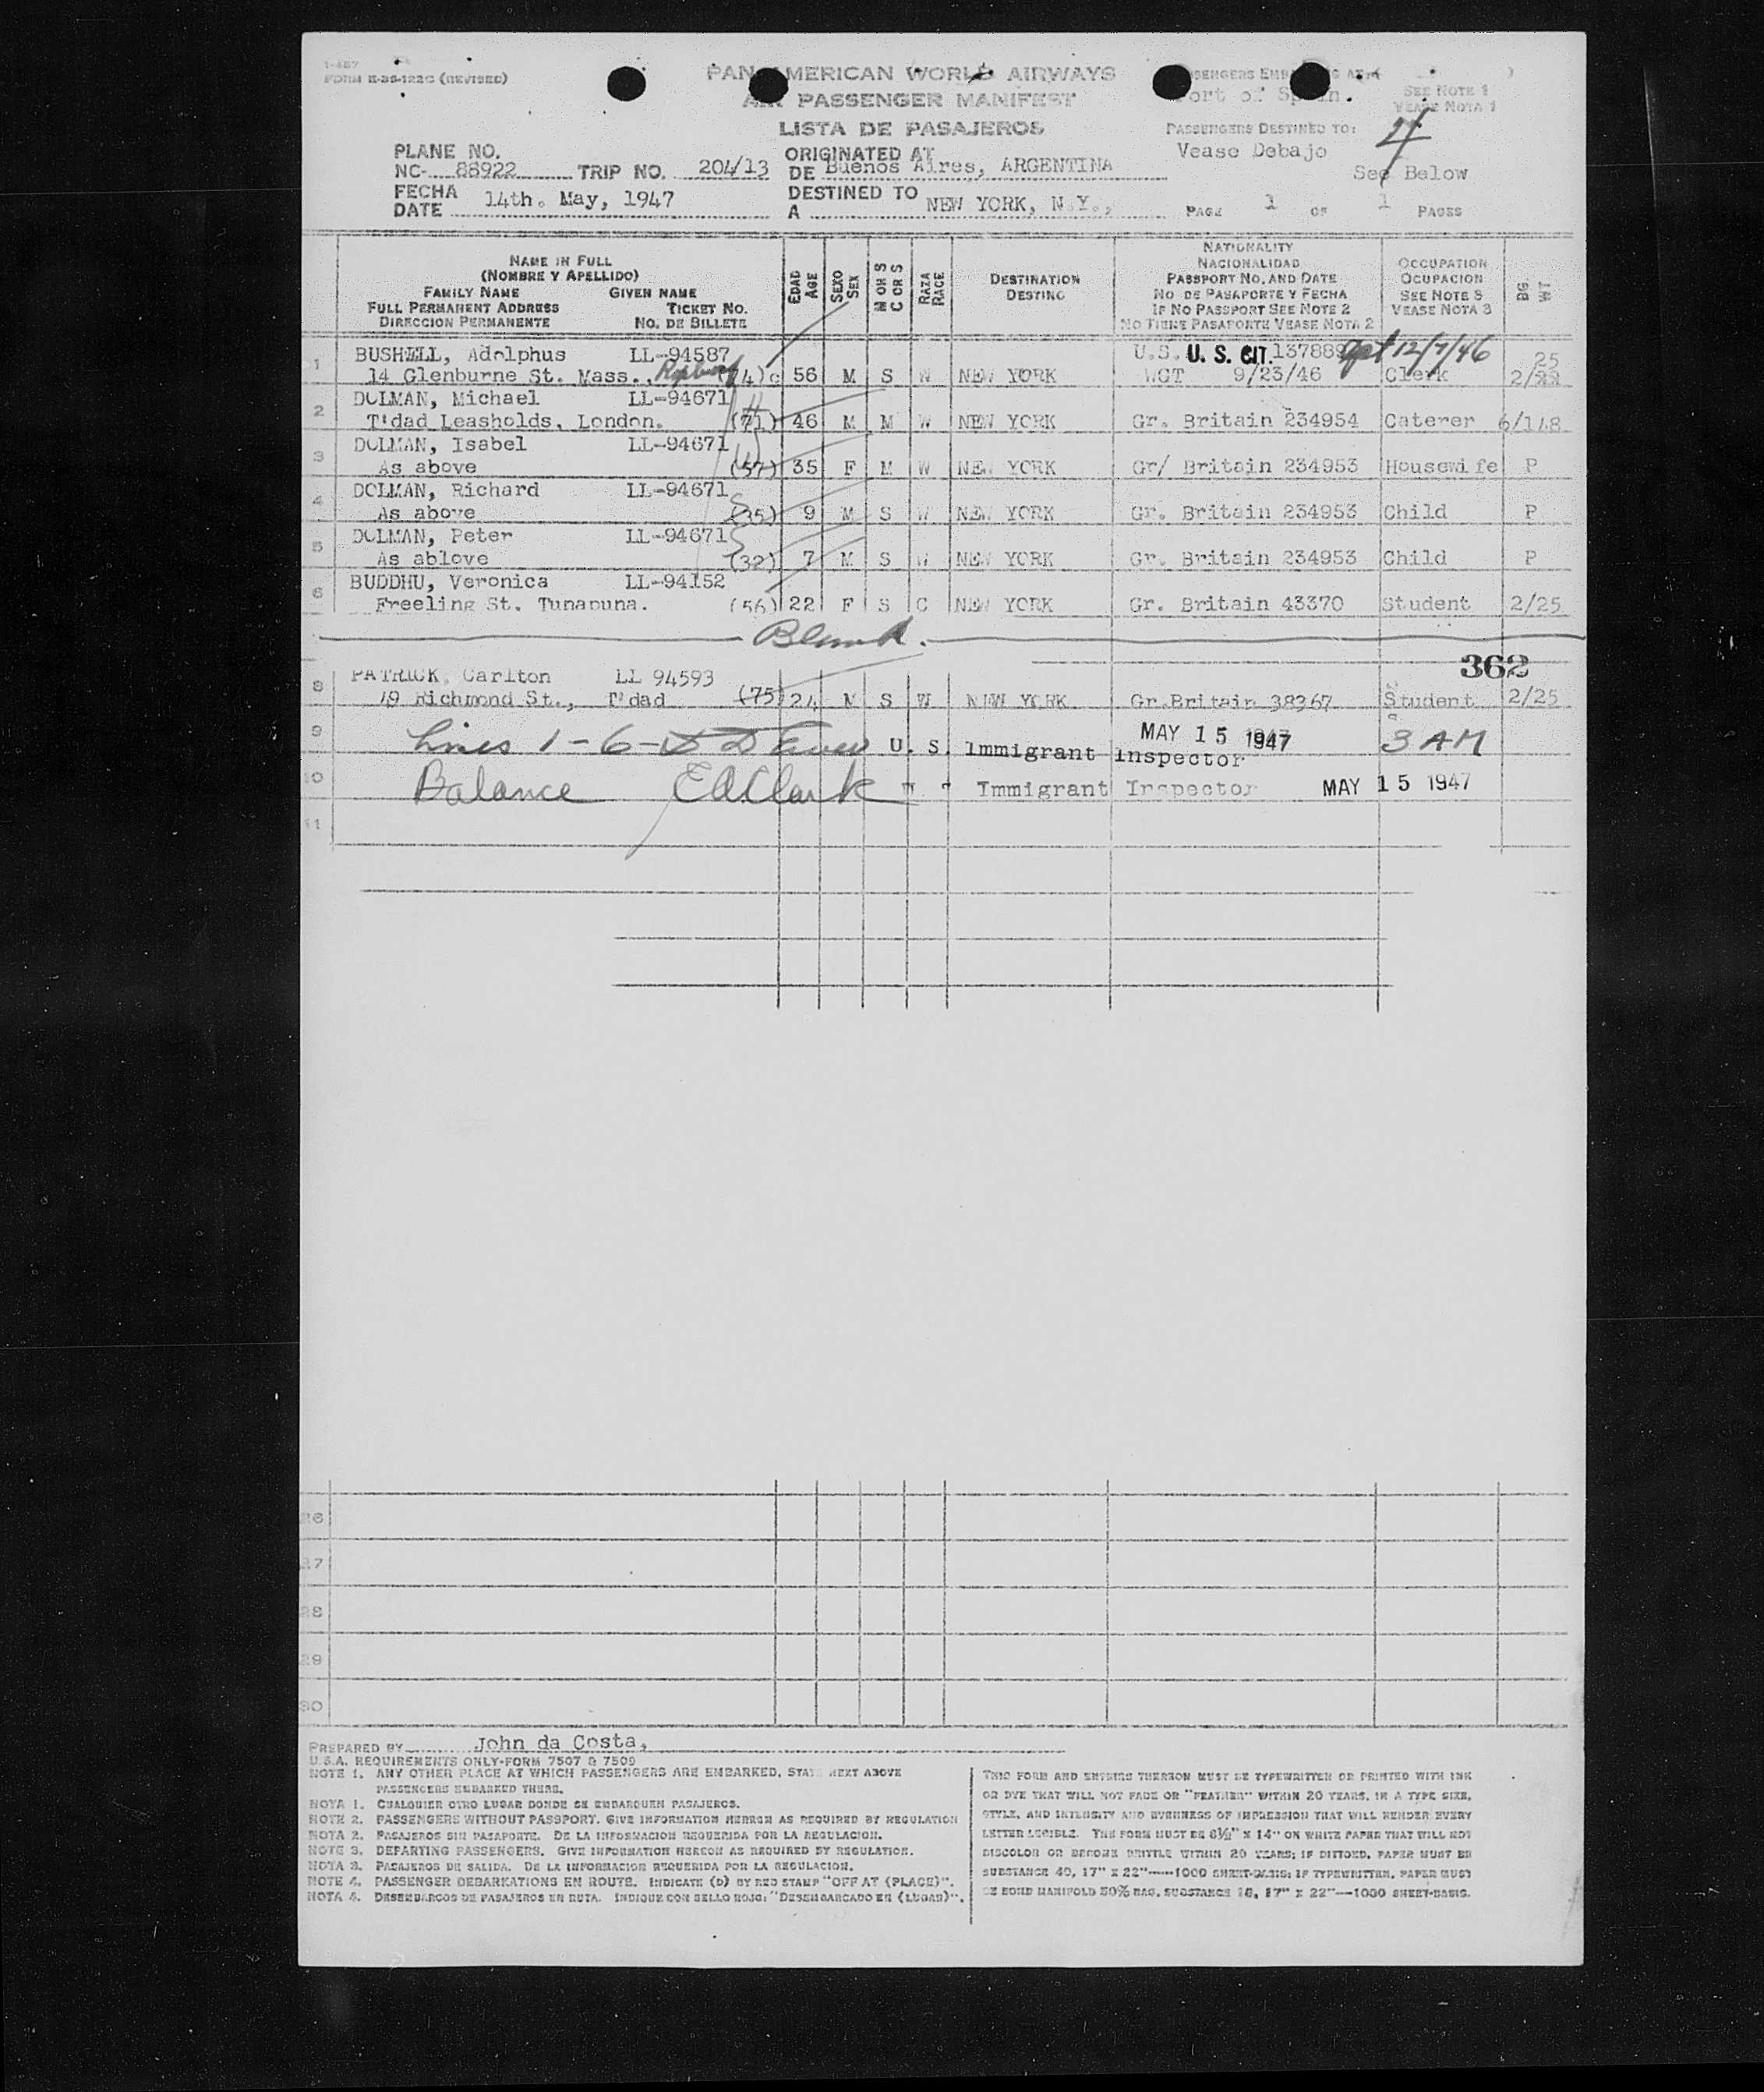 FORM E-35-122C (REVISED)
PAN AMERICAN WORLD AIRWAYS
AIR PASSENGER MANIFEST
LISTA DE PASAJEROS
PASSENGERS EMBARKING AT:
Port of Spain.
SEE NOTE 1
VEASE NOTA 1
PASSENGERS DESTINED TO:
Vease Debajo
See Below
4
PLANE NO.
NC- 88922 TRIP NO. 204/13
ORIGINATED AT
DE Buenos Aires, ARGENTINA
FECHA
DATE 14th. May, 1947
DESTINED TO
A NEW YORK, N.Y.,
PAGE 1 OF 1 PAGES
NAME IN FULL
(NOMBRE Y APELLIDO)
FAMILY NAME GIVEN NAME
FULL PERMANENT ADDRESS TICKET NO.
DIRECCION PERMANENTE NO. DE BILLETE
EDAD AGE
SEXO SEX
M OR S C OR S
RAZA RACE
DESTINATION
DESTINO
NATIONALITY
NACIONALIDAD
PASSPORT NO. AND DATE
NO. DE PASAPORTE Y FECHA
IF NO PASSPORT SEE NOTE 2
NO TIENE PASAPORTE VEASE NOTA 2
OCCUPATION
OCUPACION
SEE NOTE 3
VEASE NOTA 3
BG. WT
1 BUSHELL, Adolphus LL-94587 U.S. U. S. CIT. 12/7/46 25
14 Glenburne St. Mass., 56 M S W NEW YORK WGT 9/23/46 Clerk
2 DOLMAN, Michael LL-94671
T'dad Leasholds, London. (71) 46 M M W NEW YORK Gr. Britain 234954 Caterer 6/148
3 DOLMAN, Isabel LL-94671
As above (57) 35 F M W NEW YORK Gr/ Britain 234953 Housewife P
4 DOLMAN, Richard LL-94671
As above (35) 9 M S W NEW YORK Gr. Britain 234953 Child P
5 DOLMAN, Peter LL-94671
As ablove (32) 7 M S W NEW YORK Gr. Britain 234953 Child P
6 BUDDHU, Veronica LL-94152
Freeling St. Tunapuna. (56) 22 F S C NEW YORK Gr. Britain 43370 Student 2/25
Blank.
362
8 PATRICK, Carlton LL 94593
49 Richmond St., T'dad (75) 24 M S W NEW YORK Gr.Britain 38367 Student 2/25
9 Lines 1-6- U. S. Immigrant Inspector MAY 15 1947 3 AM
10 Balance E A Clark U. S. Immigrant Inspector MAY 15 1947
11
26
27
28
29
30
PREPARED BY John da Costa,
U.S.A. REQUIREMENTS ONLY-FORM 7507 & 7509
NOTE 1. ANY OTHER PLACE AT WHICH PASSENGERS ARE EMBARKED, STATE NEXT ABOVE
PASSENGERS EMBARKED THERE.
NOTA 1. CUALQUIER OTRO LUGAR DONDE SE EMBARQUEN PASAJEROS.
NOTE 2. PASSENGERS WITHOUT PASSPORT. GIVE INFORMATION HEREON AS REQUIRED BY REGULATION
NOTA 2. PASAJEROS SIN PASAPORTE. DE LA INFORMACION REQUERIDA POR LA REGULACION.
NOTE 3. DEPARTING PASSENGERS. GIVE INFORMATION HEREON AS REQUIRED BY REGULATION.
NOTA 3. PASAJEROS DE SALIDA. DE LA INFORMACION REQUERIDA POR LA REGULACION.
NOTE 4. PASSENGER DEBARKATIONS EN ROUTE. INDICATE (D) BY RED STAMP "OFF AT (PLACE)".
NOTA 4. DESEMBARCOS DE PASAJEROS EN RUTA. INDIQUE CON SELLO ROJO: "DESEMBARCADO EN (LUGAR)".
THIS FORM AND ENTRIES THEREON MUST BE TYPEWRITTEN OR PRINTED WITH INK
OR DYE THAT WILL NOT FADE OR "FEATHER" WITHIN 20 YEARS, IN A TYPE SIZE,
STYLE, AND INTENSITY AND EVENNESS OF IMPRESSION THAT WILL RENDER EVERY
LETTER LEGIBLE. THE FORM MUST BE 8½" X 14" ON WHITE PAPER THAT WILL NOT
DISCOLOR OR BECOME BRITTLE WITHIN 20 YEARS; IF DITTOED, PAPER MUST BE
SUBSTANCE 40, 17" X 22"—1000 SHEET-BASIS; IF TYPEWRITTEN, PAPER MUST
BE BOND MANIFOLD 50% RAG, SUBSTANCE 18, 17" X 22"—1000 SHEET-BASIS.